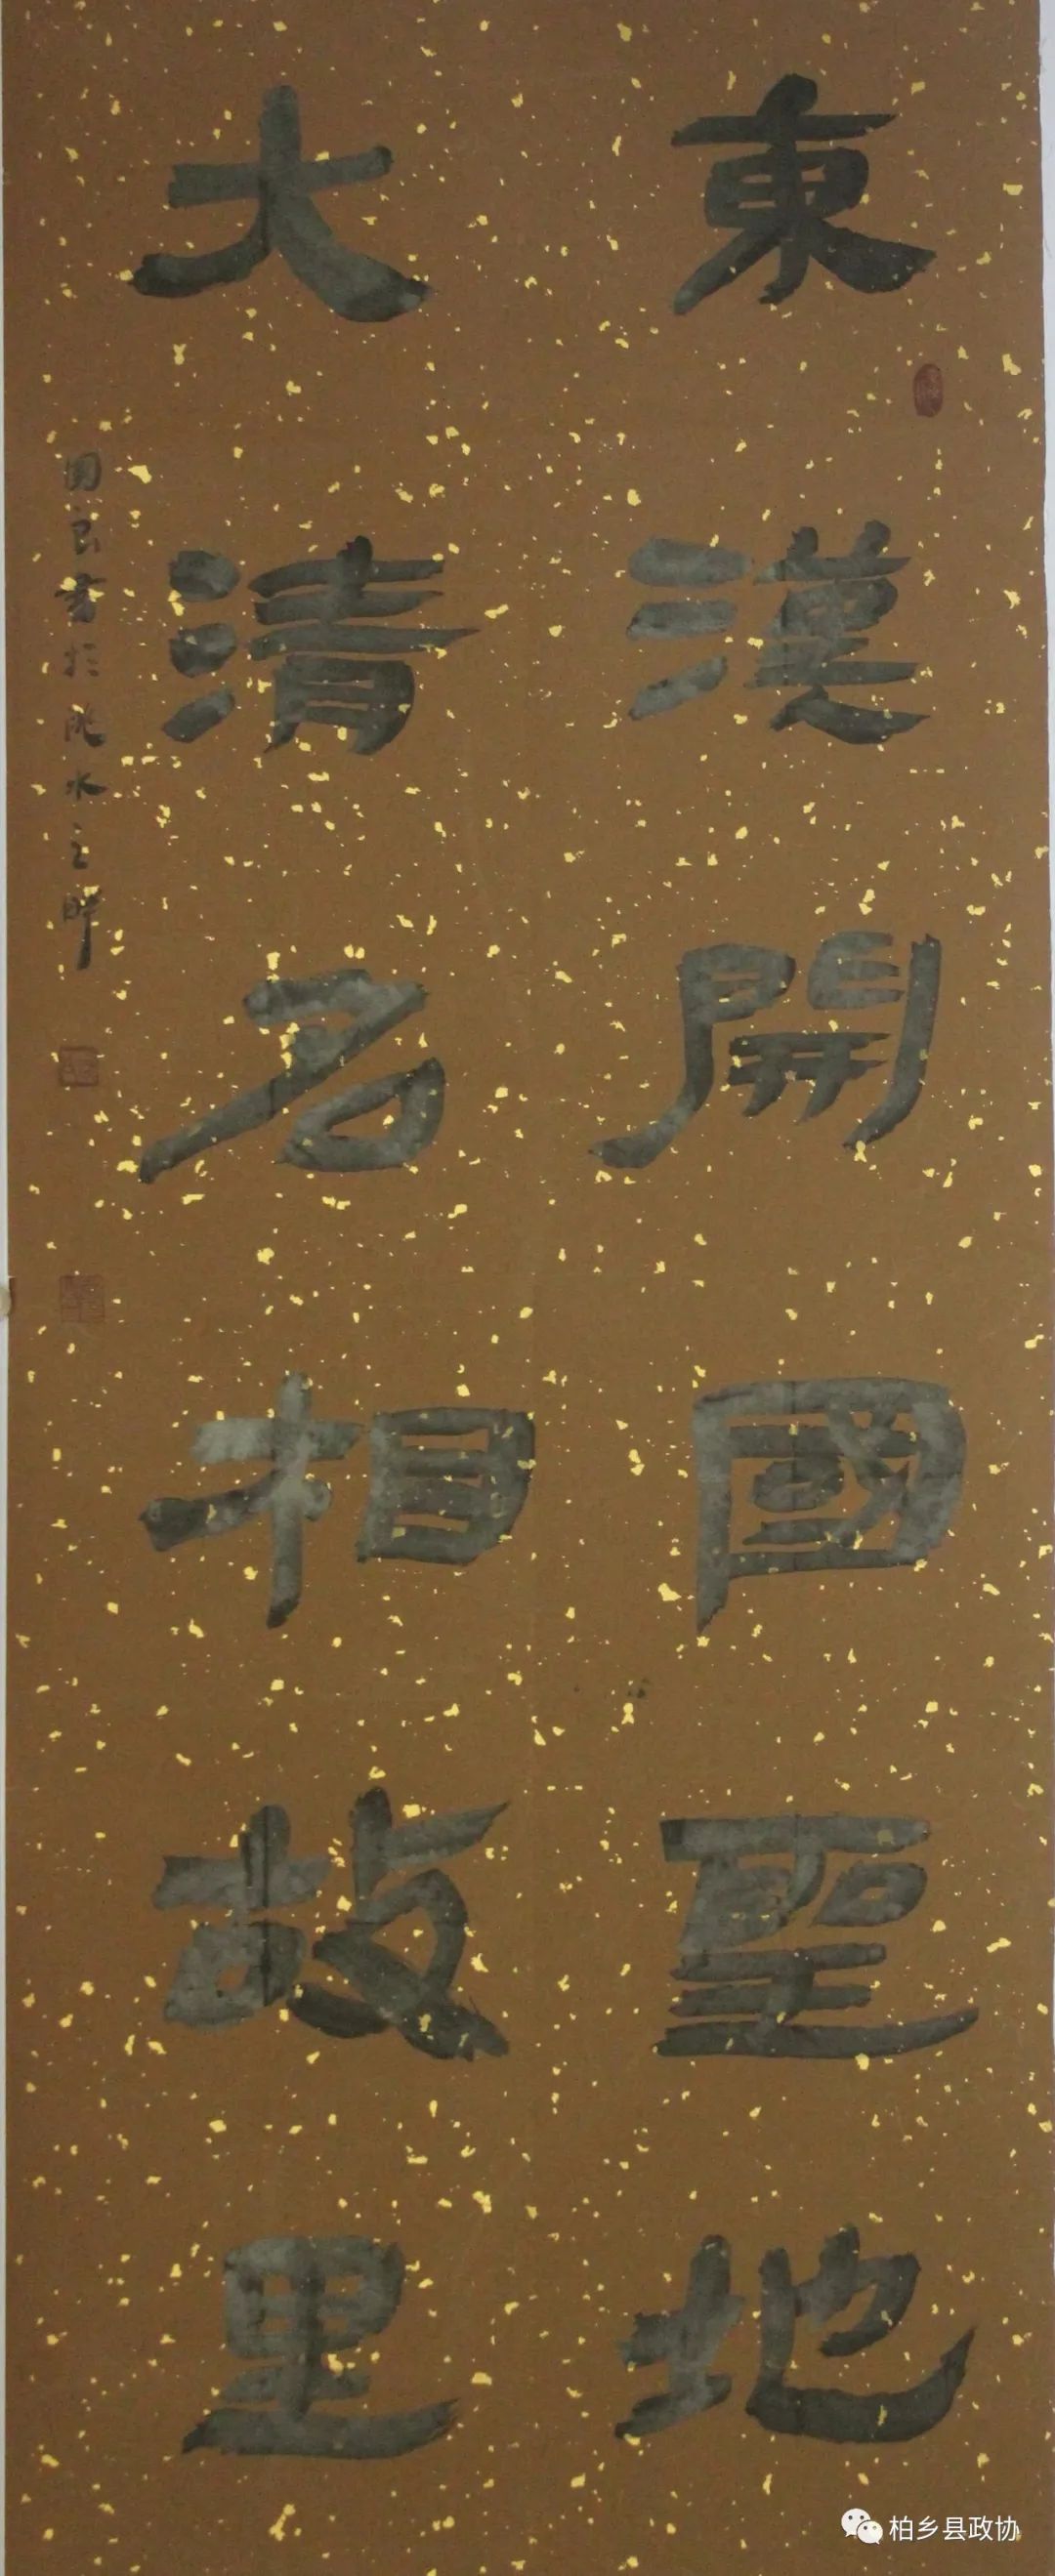 東漢開國聖地
大清名相故里
国良書於洨水之畔
柏乡县政协